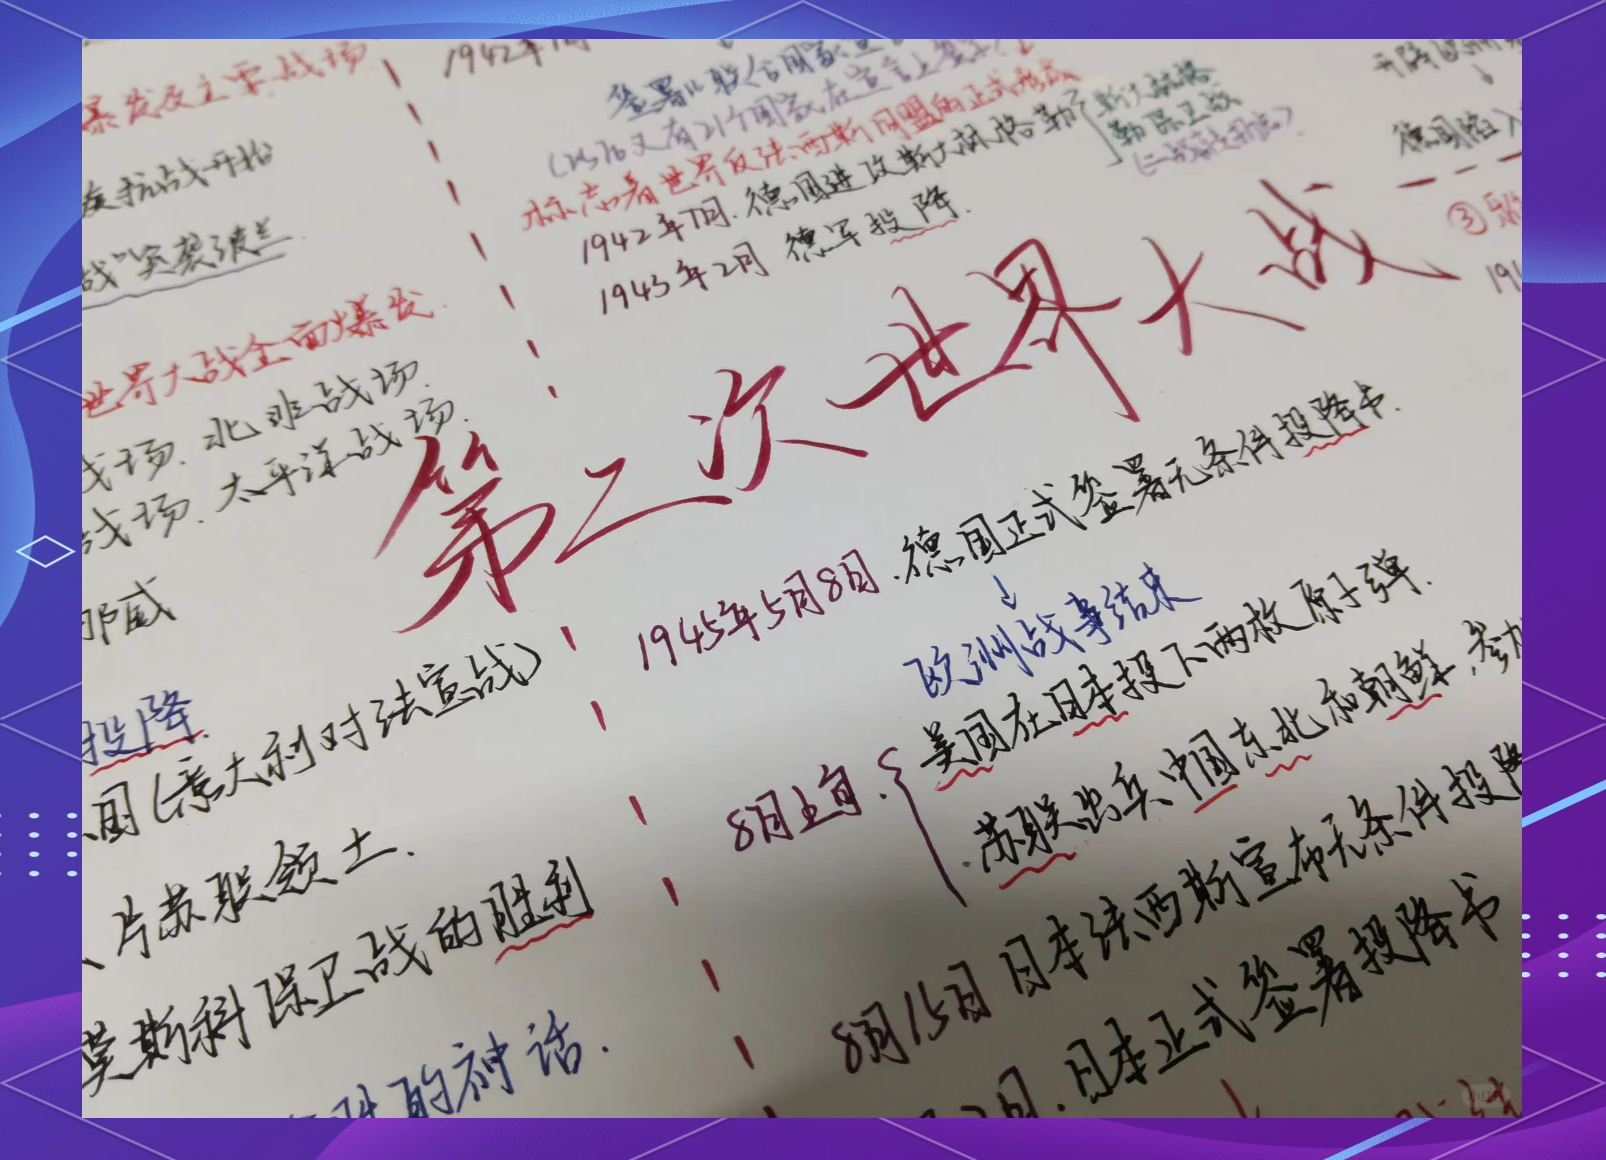 暴发及主要战场
抗战开始
战"突袭波兰
世界大战全面爆发.
战场.北非战场.
战场.太平洋战场.
挪威
投降.
国(意大利对法宣战)
片苏联领土.
莫斯科保卫战的胜利
的神话.
1942年1月
签署《联合国家宣
(以后又有21个国家在宣言上签字)
标志着世界反法西斯同盟的正式形成
1942年7月.德国进攻斯大林格勒
斯大林格
勒保卫战
(二战转折)
1943年2月 德军投降.
第二次世界大战
1945年5月8日.德国正式签署无条件投降书.
↓
欧洲战事结束
8月上旬.
美国在日本投下两枚原子弹.
苏联出兵中国东北和朝鲜,参加
8月15日 日本法西斯宣布无条件投降
2日.日本正式签署投降书
↓
德国陷入
③